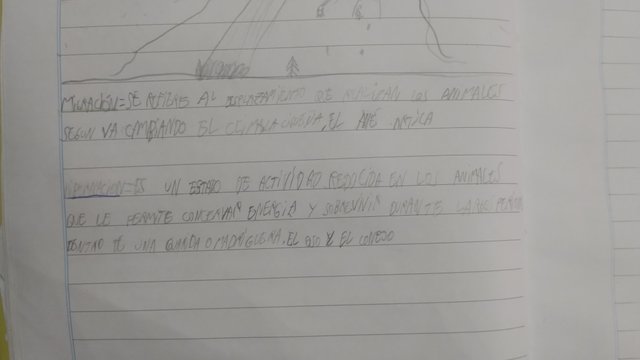 MIGRACION=SE REFIERE AL DESPLAZAMIENTO QUE REALIZAN LOS ANIMALES
SEGUN VA CAMBIANDO EL CLIMA LA CIGUEÑA, EL AVE ARTICA
HIBERNACION=ES UN ESTADO DE ACTIVIDAD REDUCIDA EN LOS ANIMALES
QUE LE PERMITE CONCERVAR ENERGIA Y SOBREVIVIR DURANTE LARGOS
DENTRO DE UNA GUARIDA O MADRIGUERA, EL OSO Y EL CONEJO